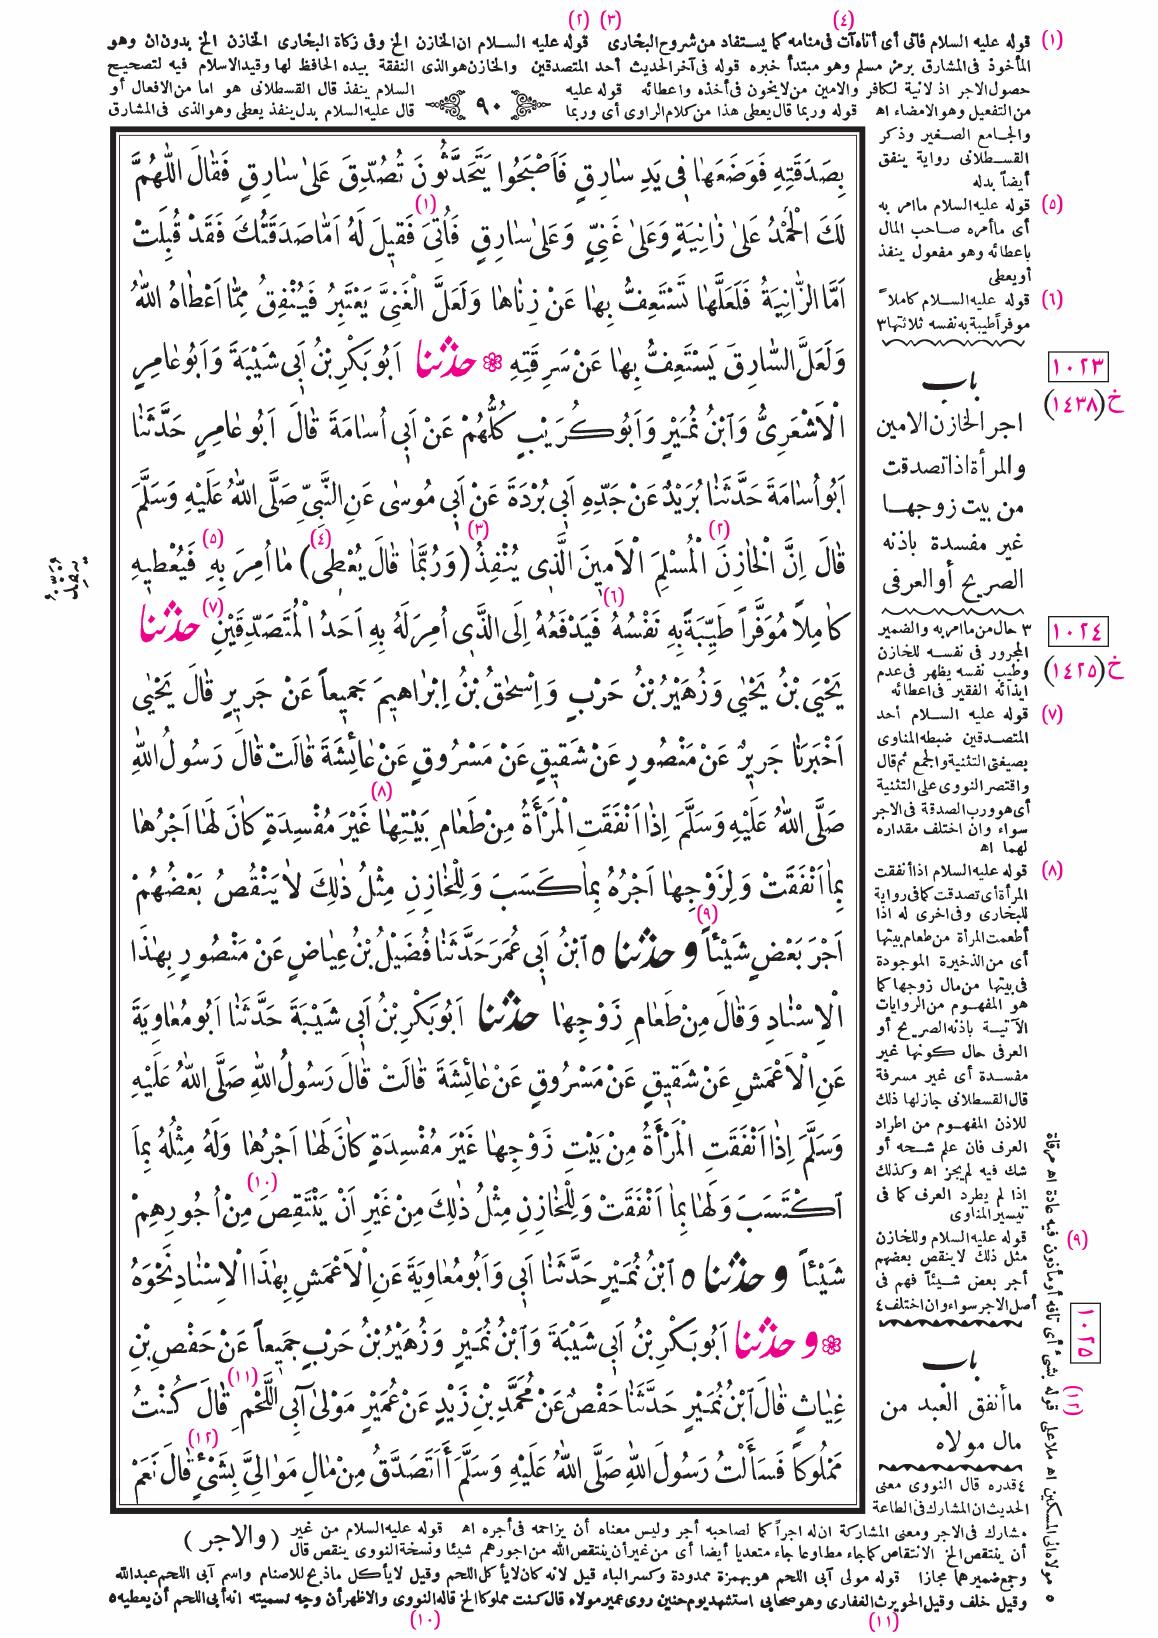 (٢) (٣) (٤)
(١) قوله عليه السلام فاتى أى أتاه آت فى منامه كما يستفاد من شروح البخارى قوله عليه السلام ان الخازن الخ وفى زكاة البخارى الخازن الخ بدون ان وهو
المأخوذ فى المشارق برمز مسلم وهو مبتدأ خبره قوله فى آخر الحديث أحد المتصدقين والخازن هو الذى النفقة بيده الحافظ لها وقيد الاسلام فيه لتصحيح
حصول الاجر اذ لا نية لكافر والامين من لا يخون فى أخذه واعطائه قوله عليه السلام ينفذ قال القسطلانى هو اما من الافعال أو
من التفعيل وهو الامضاء اه قوله وربما قال يعطى هذا من كلام الراوى أى وربما قال عليه السلام بدل ينفذ يعطى وهو الذى فى المشارق
٩٠
والجامع الصغير وذكر
القسطلانى رواية ينفق
أيضاً بدله
(٥) قوله عليه السلام ما امر به
أى ما أمره صاحب المال
باعطائه وهو مفعول ينفذ
أو يعطى
(٦) قوله عليه السلام كاملاً
موفراً طيبة به نفسه ثلاثتها ٣
بِصَدَقَتِهِ فَوَضَعَهَا فِى يَدِ سَارِقٍ فَاَصْبَحُوا يَتَحَدَّثُونَ تُصُدِّقَ عَلَى سَارِقٍ فَقَالَ اللّٰهُمَّ
(١)
لَكَ الْحَمْدُ عَلَى زَانِيَةٍ وَعَلَى غَنِيٍّ وَعَلَى سَارِقٍ فَاُتِىَ فَقِيلَ لَهُ اَمَّا صَدَقَتُكَ فَقَدْ قُبِلَتْ
اَمَّا الزَّانِيَةُ فَلَعَلَّهَا تَسْتَعِفُّ بِهَا عَنْ زِنَاهَا وَلَعَلَّ الْغَنِىَّ يَعْتَبِرُ فَيُنْفِقُ مِمَّا اَعْطَاهُ اللّٰهُ
وَلَعَلَّ السَّارِقَ يَسْتَعِفُّ بِهَا عَنْ سَرِقَتِهِ ❁ حدثنا اَبُو بَكْرِ بْنُ اَبِى شَيْبَةَ وَاَبُو عَامِرٍ
الْاَشْعَرِىُّ وَابْنُ نُمَيْرٍ وَاَبُو كُرَيْبٍ كُلُّهُمْ عَنْ اَبِى اُسَامَةَ قَالَ اَبُو عَامِرٍ حَدَّثَنَا
اَبُو اُسَامَةَ حَدَّثَنَا بُرَيْدٌ عَنْ جَدِّهِ اَبِى بُرْدَةَ عَنْ اَبِى مُوسَى عَنِ النَّبِىِّ صَلَّى اللّٰهُ عَلَيْهِ وَسَلَّمَ
(٢) (٣) (٤) (٥)
قَالَ اِنَّ الْخَازِنَ الْمُسْلِمَ الْاَمِينَ الَّذِى يُنْفِذُ (وَرُبَّمَا قَالَ يُعْطِى) مَا اُمِرَ بِهِ فَيُعْطِيهِ
(٦)
كَامِلاً مُوَفَّراً طَيِّبَةً بِهِ نَفْسُهُ فَيَدْفَعُهُ اِلَى الَّذِى اُمِرَ لَهُ بِهِ اَحَدُ الْمُتَصَدِّقَيْنِ (٧) حدثنا
يَحْيَى بْنُ يَحْيَى وَزُهَيْرُ بْنُ حَرْبٍ وَاِسْحٰقُ بْنُ اِبْرَاهِيمَ جَمِيعاً عَنْ جَرِيرٍ قَالَ يَحْيَى
اَخْبَرَنَا جَرِيرٌ عَنْ مَنْصُورٍ عَنْ شَقِيقٍ عَنْ مَسْرُوقٍ عَنْ عَائِشَةَ قَالَتْ قَالَ رَسُولُ اللّٰهِ
(٨)
صَلَّى اللّٰهُ عَلَيْهِ وَسَلَّمَ اِذَا اَنْفَقَتِ الْمَرْأَةُ مِنْ طَعَامِ بَيْتِهَا غَيْرَ مُفْسِدَةٍ كَانَ لَهَا اَجْرُهَا
بِمَا اَنْفَقَتْ وَلِزَوْجِهَا اَجْرُهُ بِمَا كَسَبَ وَلِلْخَازِنِ مِثْلُ ذٰلِكَ لَا يَنْقُصُ بَعْضُهُمْ
(٩)
اَجْرَ بَعْضٍ شَيْئاً وحدثنا ٥ ابْنُ اَبِى عُمَرَ حَدَّثَنَا فُضَيْلُ بْنُ عِيَاضٍ عَنْ مَنْصُورٍ بِهٰذَا
الْاِسْنَادِ وَقَالَ مِنْ طَعَامِ زَوْجِهَا حدثنا اَبُو بَكْرِ بْنُ اَبِى شَيْبَةَ حَدَّثَنَا اَبُو مُعَاوِيَةَ
عَنِ الْاَعْمَشِ عَنْ شَقِيقٍ عَنْ مَسْرُوقٍ عَنْ عَائِشَةَ قَالَتْ قَالَ رَسُولُ اللّٰهِ صَلَّى اللّٰهُ عَلَيْهِ
وَسَلَّمَ اِذَا اَنْفَقَتِ الْمَرْأَةُ مِنْ بَيْتِ زَوْجِهَا غَيْرَ مُفْسِدَةٍ كَانَ لَهَا اَجْرُهَا وَلَهُ مِثْلُهُ بِمَا
(١٠)
اكْتَسَبَ وَلَهَا بِمَا اَنْفَقَتْ وَلِلْخَازِنِ مِثْلُ ذٰلِكَ مِنْ غَيْرِ اَنْ يَنْتَقِصَ مِنْ اُجُورِهِمْ
شَيْئاً وحدثنا ٥ ابْنُ نُمَيْرٍ حَدَّثَنَا اَبِى وَاَبُو مُعَاوِيَةَ عَنِ الْاَعْمَشِ بِهٰذَا الْاِسْنَادِ نَحْوَهُ
❁ وحدثنا اَبُو بَكْرِ بْنُ اَبِى شَيْبَةَ وَابْنُ نُمَيْرٍ وَزُهَيْرُ بْنُ حَرْبٍ جَمِيعاً عَنْ حَفْصِ بْنِ
(١١)
غِيَاثٍ قَالَ ابْنُ نُمَيْرٍ حَدَّثَنَا حَفْصٌ عَنْ مُحَمَّدِ بْنِ زَيْدٍ عَنْ عُمَيْرٍ مَوْلَى آبِى اللَّحْمِ قَالَ كُنْتُ
(١٢)
مَمْلُوكاً فَسَأَلْتُ رَسُولَ اللّٰهِ صَلَّى اللّٰهُ عَلَيْهِ وَسَلَّمَ أَاَتَصَدَّقُ مِنْ مَالِ مَوَالِىَّ بِشَىْءٍ قَالَ نَعَمْ
١٠٢٣
خ (١٤٣٨)
باب
اجر الخازن الامين
والمرأة اذا تصدقت
من بيت زوجها
غير مفسدة باذنه
الصريح أو العرفى
١٠٢٤
خ (١٤٢٥)
٣ حال من ما امر به والضمير
المجرور فى نفسه للخازن
وطيب نفسه يظهر فى عدم
ايذائه الفقير فى اعطائه
(٧) قوله عليه السلام أحد
المتصدقين ضبطه المناوى
بصيغتى التثنية والجمع ثم قال
واقتصر النووى على التثنية
أى هو ورب الصدقة فى الاجر
سواء وان اختلف مقداره
لهما اه
(٨) قوله عليه السلام اذا أنفقت
المرأة أى تصدقت كما فى رواية
للبخارى وفى اخرى له اذا
أطعمت المرأة من طعام بيتها
أى من الذخيرة الموجودة
فى بيتها من مال زوجها كما
هو المفهوم من الروايات
الآتية باذنه الصريح أو
العرفى حال كونها غير
مفسدة أى غير مسرفة
قال القسطلانى جاز لها ذلك
للاذن المفهوم من اطراد
العرف فان علم شحه أو
شك فيه لم يجز اه وكذلك
اذا لم يطرد العرف كما فى
تيسير المناوى
(٩) قوله عليه السلام وللخازن
مثل ذلك لا ينقص بعضهم
أجر بعض شيئاً فهم فى
أصل الاجر سواء وان اختلف ٤
١٠٢٥
باب
ما أنفق العبد من
مال مولاه
٤ قدره قال النووى معنى
الحديث ان المشارك فى الطاعة
(١٢) قوله بشىء أى تافه أو مأذون فيه عادة اه مرقاة
مولاه الى المسكين اه ملا على ٥
مشارك فى الاجر ومعنى المشاركة ان له اجراً كما لصاحبه أجر وليس معناه أن يزاحمه فى أجره اه قوله عليه السلام من غير
( والاجر )
أن ينتقص الخ الانتقاص كما جاء مطاوعا جاء متعديا أيضا أى من غير أن ينتقص الله من اجورهم شيئا ونسخة النووى ينقص قال
وجمع ضميرهما مجازا قوله مولى آبى اللحم هو بهمزة ممدودة وكسر الباء قيل لانه كان لا يأكل اللحم وقيل لا يأكل ما ذبح للاصنام واسم آبى اللحم عبد الله
وقيل خلف وقيل الحويرث الغفارى وهو صحابى استشهد يوم حنين روى عمير مولاه قال كنت مملوكا الخ قاله النووى والاظهر أن وجه تسميته انه أبى اللحم أن يعطيه ٥
(١٠) (١١)